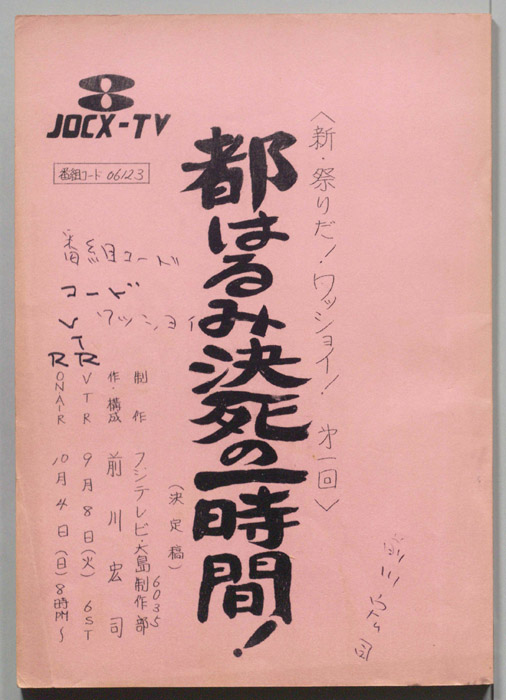 JOCX-TV
番組コード 06123
〈新・祭りだ!ワッショイ! 第一回〉
都はるみ決死の一時間!
(決定稿)
制作 フジテレビ・大島制作部
6035
作・構成 前川宏司
VTR 9月8日(火) 6ST
ONAIR 10月4日(日)8時〜
番組コード
コード
ワッショイ
VTR
R